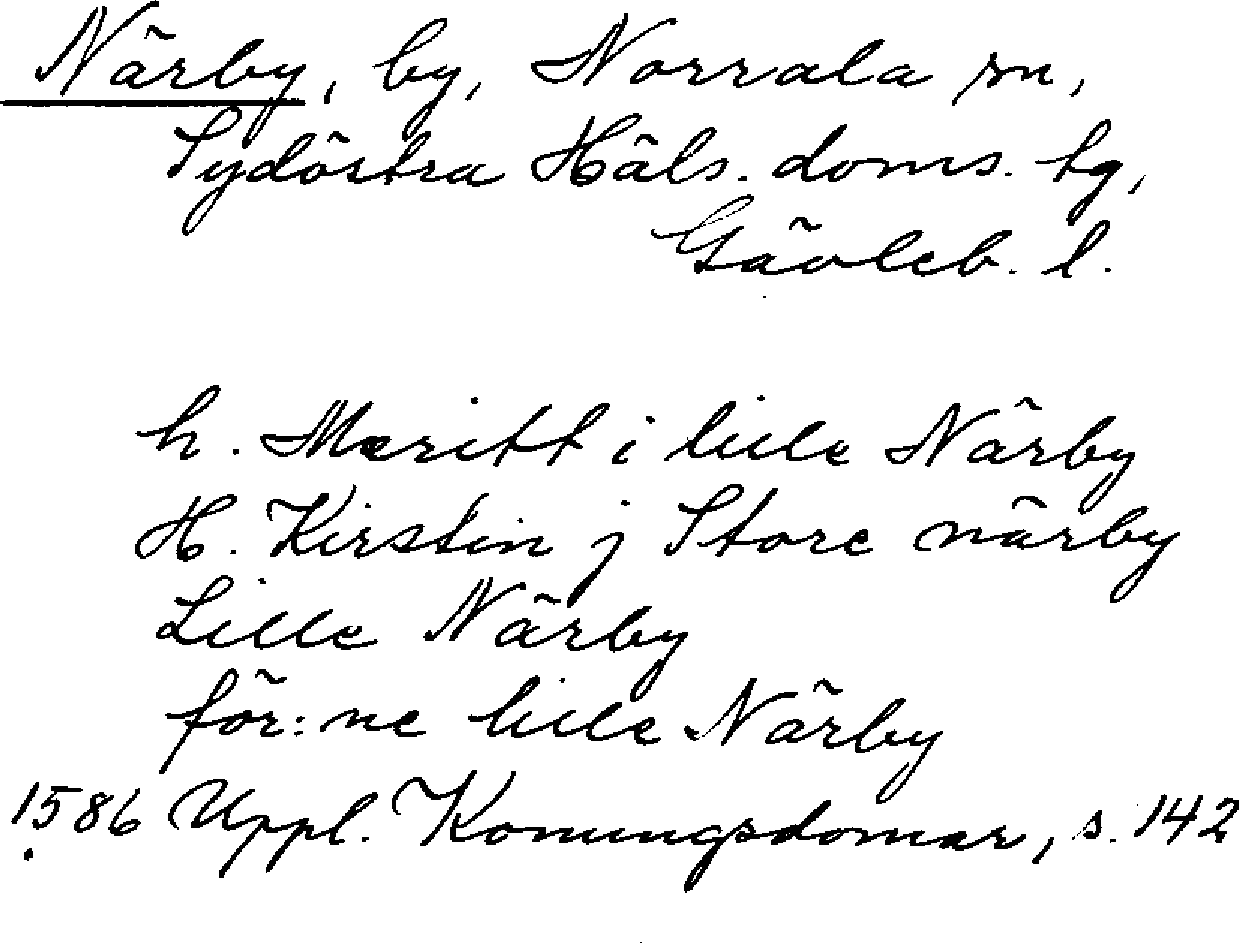 Närby, by, Norrala sn,
Sydöstra Häls. doms. tg,
Gävleb. l.
h. Meritt i lille Närby
H. Kirstin j Store närby
Lille Närby
för:ne lille Närby
1586 Uppl. Konungsdomar, s. 142